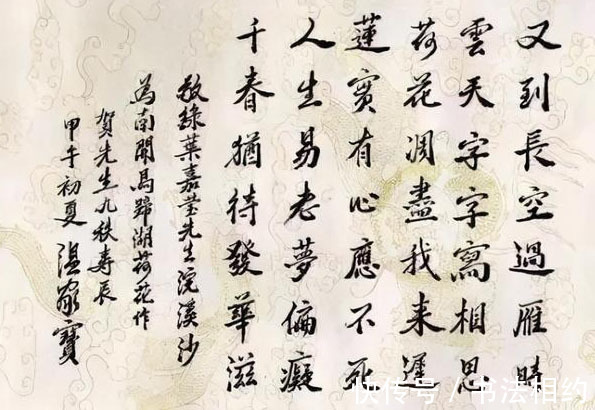 又到長空過雁時
雲天字字寫相思
荷花凋盡我来遲
蓮實有心應不死
人生易老夢偏癡
千春猶待發華滋
敬錄葉嘉瑩先生浣溪沙
為南開馬蹄湖荷花作
賀先生九秩壽辰
甲午初夏 温家寶
快传号 / 书法相约